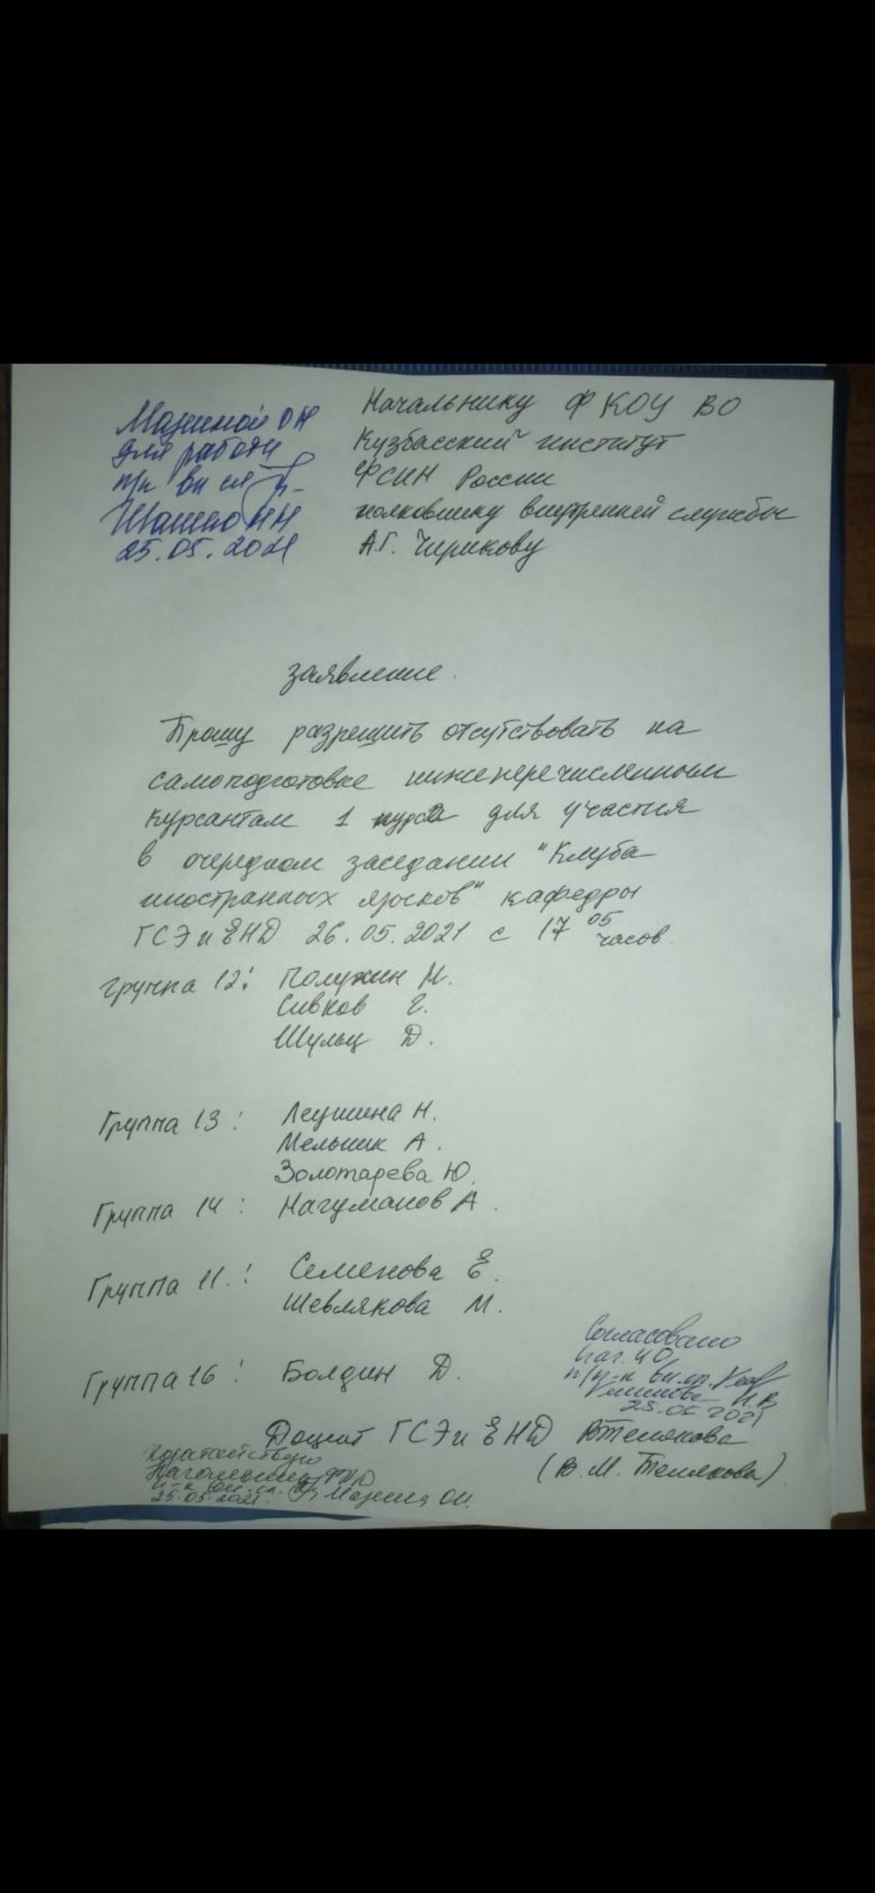 Мазиной ОН
для работы
п/п вн сл
Шатило НН
25.05.2021
Начальнику ФКОУ ВО
Кузбасский институт
ФСИН России
полковнику внутренней службы
А.Г. Чирикову
заявление.
Прошу разрешить отсутствовать на
самоподготовке нижеперечисленным
курсантам 1 курса для участия
в очередном заседании "Клуба
иностранных языков" кафедры
ГСЭ и ЕНД 26.05.2021 с 17 05 часов.
Группа 12: Полухин М.
Сивков Г.
Шульц Д.
Группа 13: Леушина Н.
Мельник А.
Золотарева Ю.
Группа 14: Нагуманов А.
Группа 11.: Семенова Е.
Шевлякова М.
Группа 16: Болдин Д.
Согласовано
Нач. УО
п/п-к вн.сл.
25.05.2021
Доцент ГСЭ и ЕНД ВТелякова
(В.М. Телякова)
Ходатайствую
п-к вн. сл. Мазина ОН.
25.05.2021.